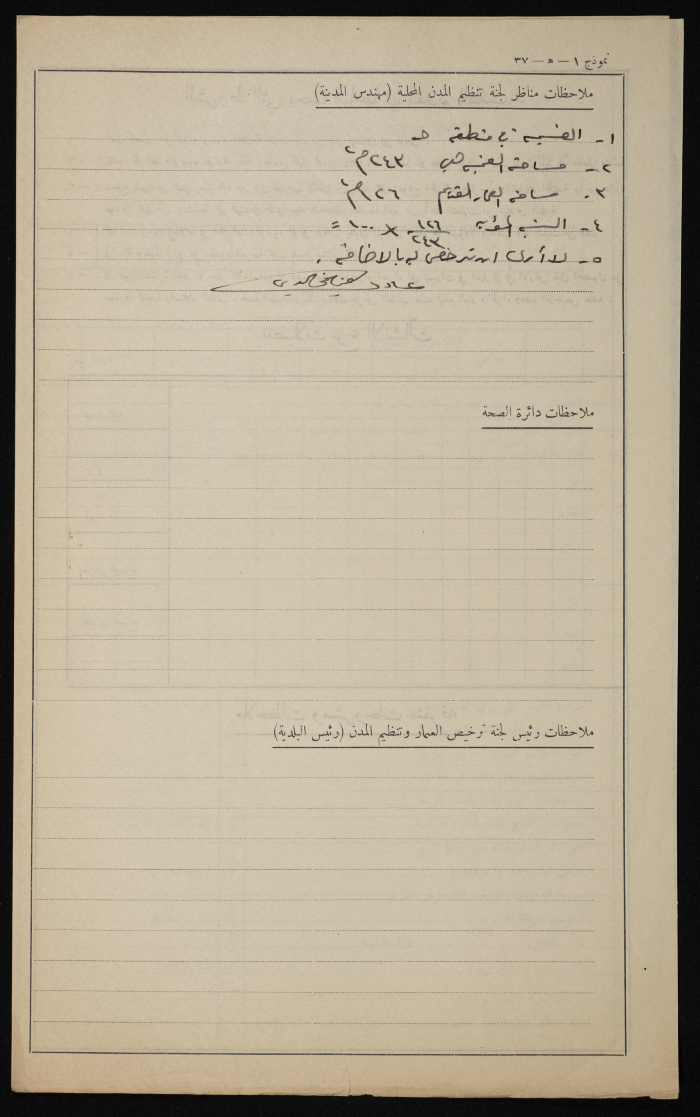 نموذج ١ — ه — ٣٧
ملاحظات مناظر لجنة تنظيم المدن المحلية (مهندس المدينة)
١- القسيمة في منطقة حـ
٢- مساحة القسيمة هي ٢٤٣ م٢
٣- مساحة العمار القديم ١٢٦ م٢
٤- النسبة المئوية ١٢٦/٢٤٣ × ١٠٠ =
٥- لا أرى ان ترخص له بالاضافة .
ملاحظات دائرة الصحة
ملاحظات رئيس لجنة ترخيص العمار وتنظيم المدن (رئيس البلدية)